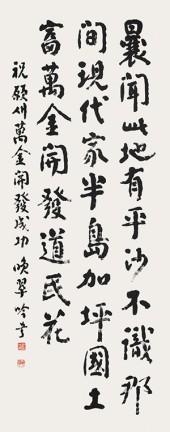 曩聞此地有平沙不識那
間現代家半島加坪國土
富萬金開發道民花
祝願싸萬金開發成功 晩翠吟草